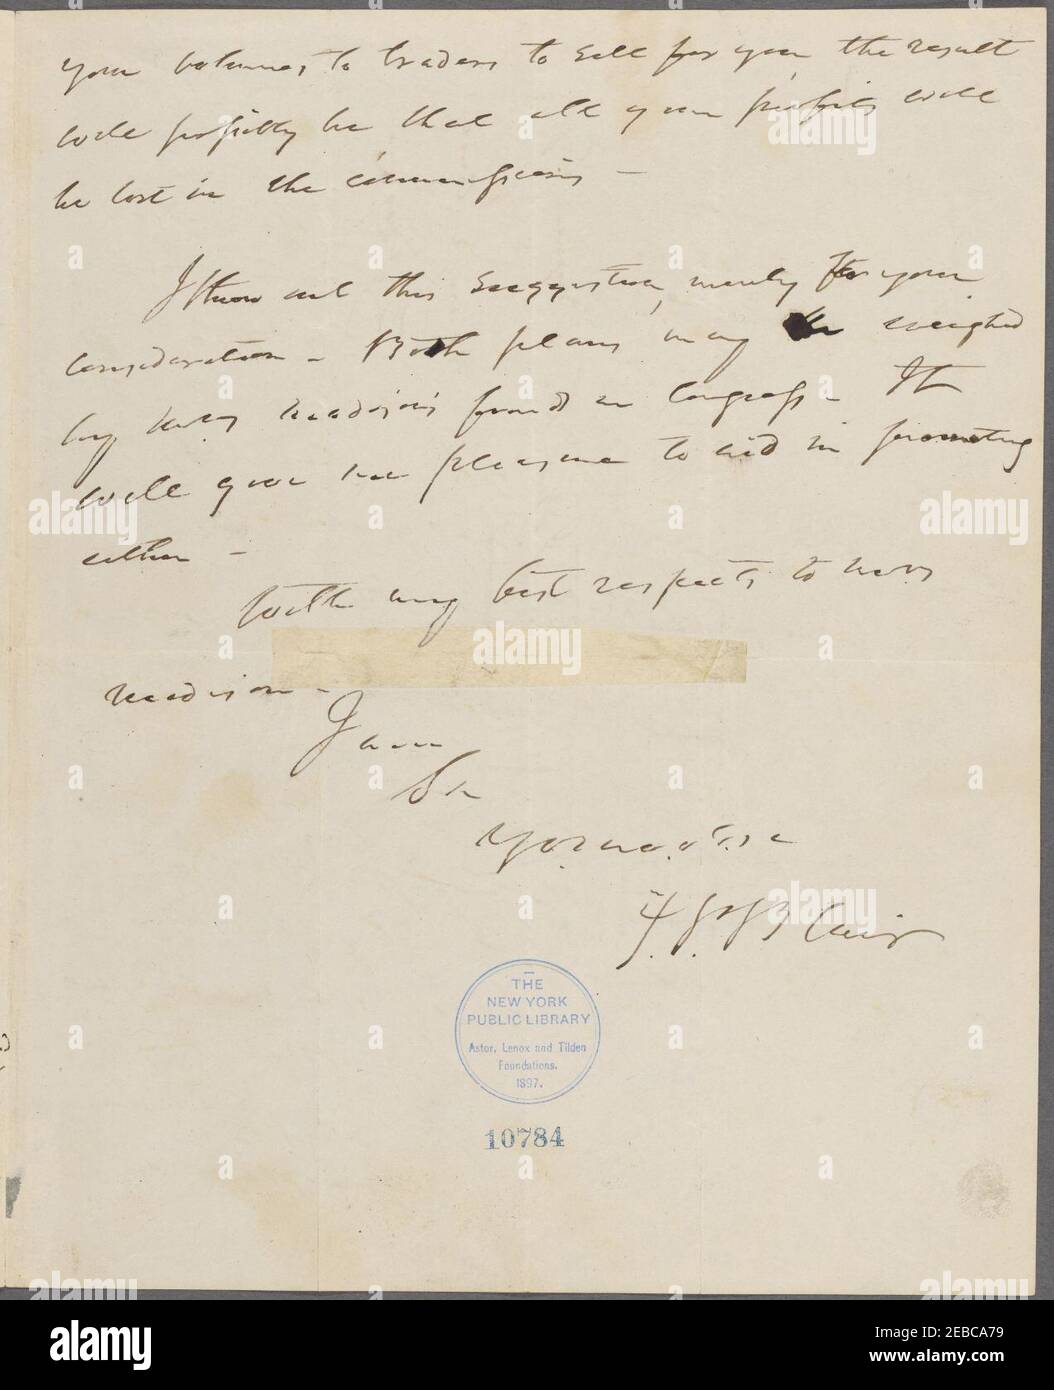 your volumes to traders to sell for you, the result
will possibly be that all your profits will
be lost in the commissions –
I throw out this suggestion, merely for your
consideration – Both plans may be weighed
by Mrs Madison's friends in Congress – It
will give me pleasure to aid in promoting
either –
With my best respects to Mrs
Madison –
I am
Sir
Yo. mo. o. Se
F. P. Blair
THE
NEW YORK
PUBLIC LIBRARY
Astor, Lenox and Tilden
Foundations.
1897.
10784
alamy
Image ID: 2EBCA79
www.alamy.com